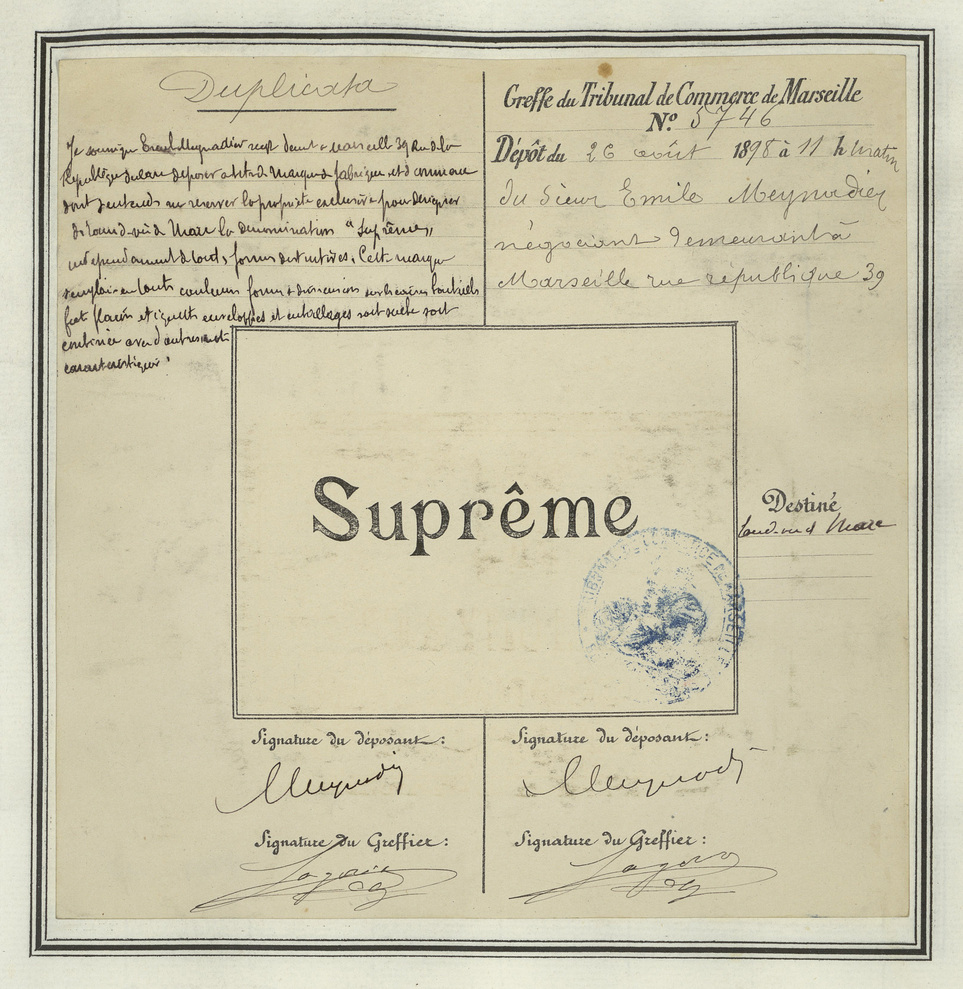 Duplicata
Je soussigné Emile Meynadier négt demt à Marseille 39 Rue de la
République déclare déposer à titre de Marque de fabrique et de commerce
dont j'entends me reserver la propriété exclusive pour désigner
de l'eau-de-vie de Marc la dénomination "Suprême"
independament de toutes formes distinctives. Cette marque
s'emploie en toutes couleurs formes & dimensions sur bouteilles
fûts flacons etiquettes enveloppes et emballages soit seule soit
combinée avec d'autres
caractéristiques
Greffe du Tribunal de Commerce de Marseille
N.° 5746
Dépôt du 26 août 1898 à 11 h matin
du Sieur Emile Meynadier
négociant demeurant à
Marseille rue république 39
Suprême
TRIBUNAL DE COMMERCE DE MARSEILLE
Destiné
eau-de-vie de Marc
Signature du déposant :
Meynadier
Signature du Greffier :
Signature du déposant :
Meynadier
Signature du Greffier :